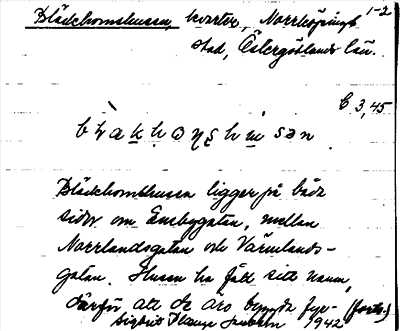 Bläckhornshusen, kvarter, Norrköpings 1-2
stad, Östergötlands län.
C 3,45
Bläckhornshusen ligger på båda
sidor om Enebygatan, mellan
Norrlandsgatan och Värmlands-
gatan. Husen ha fått sitt namn,
därför att de äro byggda fyr- (forts.)
1942